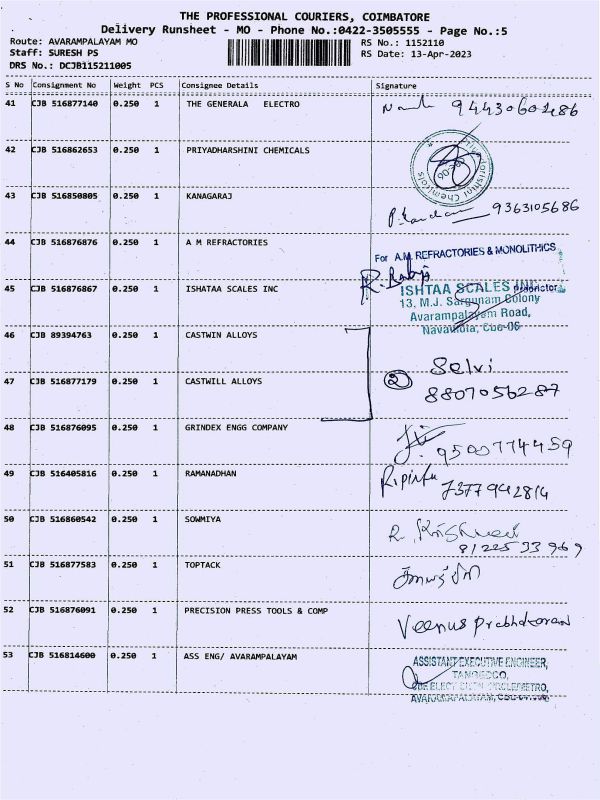 THE PROFESSIONAL COURIERS, COIMBATORE
Delivery Runsheet - MO - Phone No.:0422-3505555 - Page No.:5
Route: AVARAMPALAYAM MO RS No.: 1152110
Staff: SURESH PS RS Date: 13-Apr-2023
DRS No.: DCJB115211005
S No Consignment No Weight PCS Consignee Details Signature
41 CJB 516877140 0.250 1 THE GENERALA ELECTRO
42 CJB 516862653 0.250 1 PRIYADHARSHINI CHEMICALS
43 CJB 516850805 0.250 1 KANAGARAJ 9363105686
44 CJB 516876876 0.250 1 A M REFRACTORIES For A.M. REFRACTORIES & MONOLITHICS
R. Babji
45 CJB 516876867 0.250 1 ISHATAA SCALES INC ISHTAA SCALES INC Proprietor
13, M.J. Sargunam Colony
Avarampalayam Road,
Navaindia, Cbe-06
46 CJB 89394763 0.250 1 CASTWIN ALLOYS Selvi
47 CJB 516877179 0.250 1 CASTWILL ALLOYS 2 8807056287
48 CJB 516876095 0.250 1 GRINDEX ENGG COMPANY 9500774459
49 CJB 516405816 0.250 1 RAMANADHAN 7377942814
50 CJB 516860542 0.250 1 SOWMIYA R.
8122533969
51 CJB 516877583 0.250 1 TOPTACK
52 CJB 516876091 0.250 1 PRECISION PRESS TOOLS & COMP Veenus Prabhakaran
53 CJB 516814600 0.250 1 ASS ENG/ AVARAMPALAYAM ASSISTANT EXECUTIVE ENGINEER,
TANGEDCO,